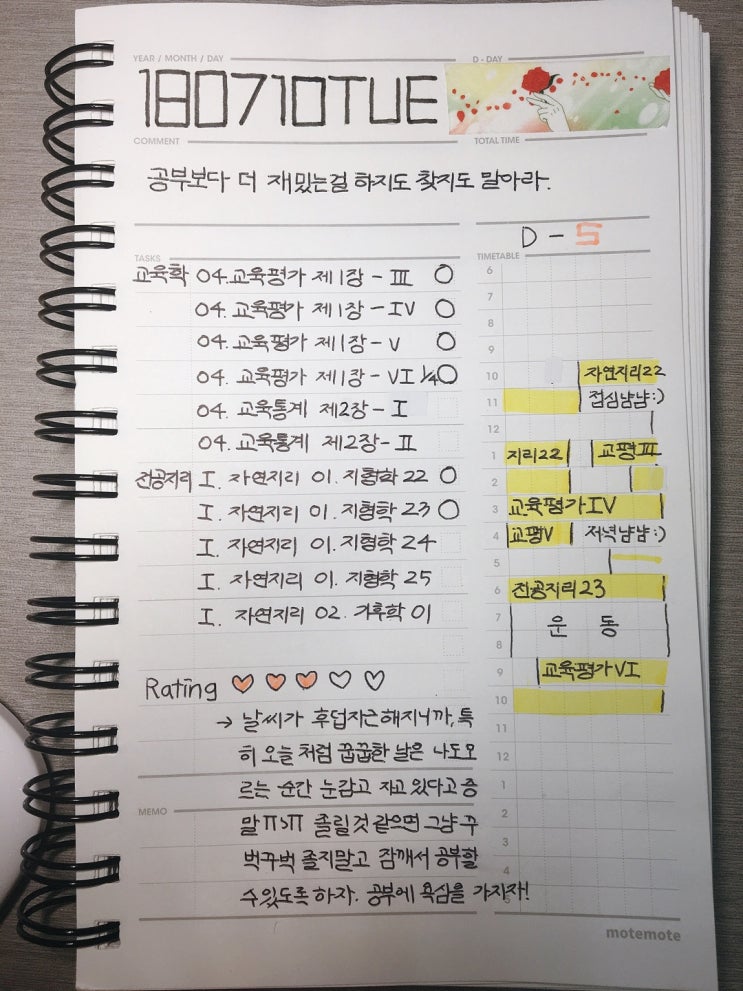 YEAR / MONTH / DAY
D - DAY
180710TUE
COMMENT
TOTAL TIME
공부보다 더 재밌는걸 하지도 찾지도 말아라.
D - 5
TASKS
교육학 04. 교육평가 제1장 - III
04. 교육평가 제1장 - IV
04. 교육평가 제1장 - V
04. 교육평가 제1장 - VI 1/4
04. 교육통계 제2장 - I
04. 교육통계 제2장 - II
전공지리 I. 자연지리 01. 지형학 22
I. 자연지리 01. 지형학 23
I. 자연지리 01. 지형학 24
I. 자연지리 01. 지형학 25
I. 자연지리 02. 기후학 01
TIMETABLE
6
7
8
9
10 자연지리22
11 점심냠냠:)
12
1 지리22 교평III
2
3 교육평가IV
4 교평V 저녁냠냠:)
5
6 전공지리23
7 운 동
8
9 교육평가VI
10
11
12
1
2
3
4
5
Rating
→ 날씨가 후덥지근해지니까, 특
히 오늘 처럼 꿉꿉한 날은 나도모
르는 순간 눈감고 자고 있다고 증
MEMO
말ㅠㅅㅠ 졸릴것 같으면 그냥 꾸
벅꾸벅 졸지말고 잠깨서 공부할
수있도록 하자. 공부에 욕심을 가지자!
motemote